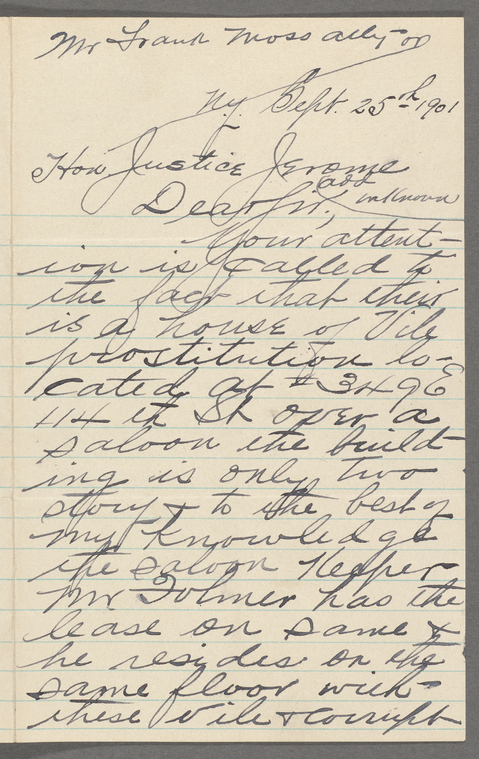 Mr Frank Moss atty-
Ny. Sept. 25th 1901
Hon Justice Jerome
add
unknown
Dear Sir,
Your attent-
ion is called to
the fact that their
is a house of Vile
prostitution lo-
cated at # 349 E
114 th St over a
saloon the build-
ing is only two
story & to the best of
my knowledge
the saloon Keeper
Mr Folmer has the
lease on same &
he resides on the
same floor with
these vile & corrupt